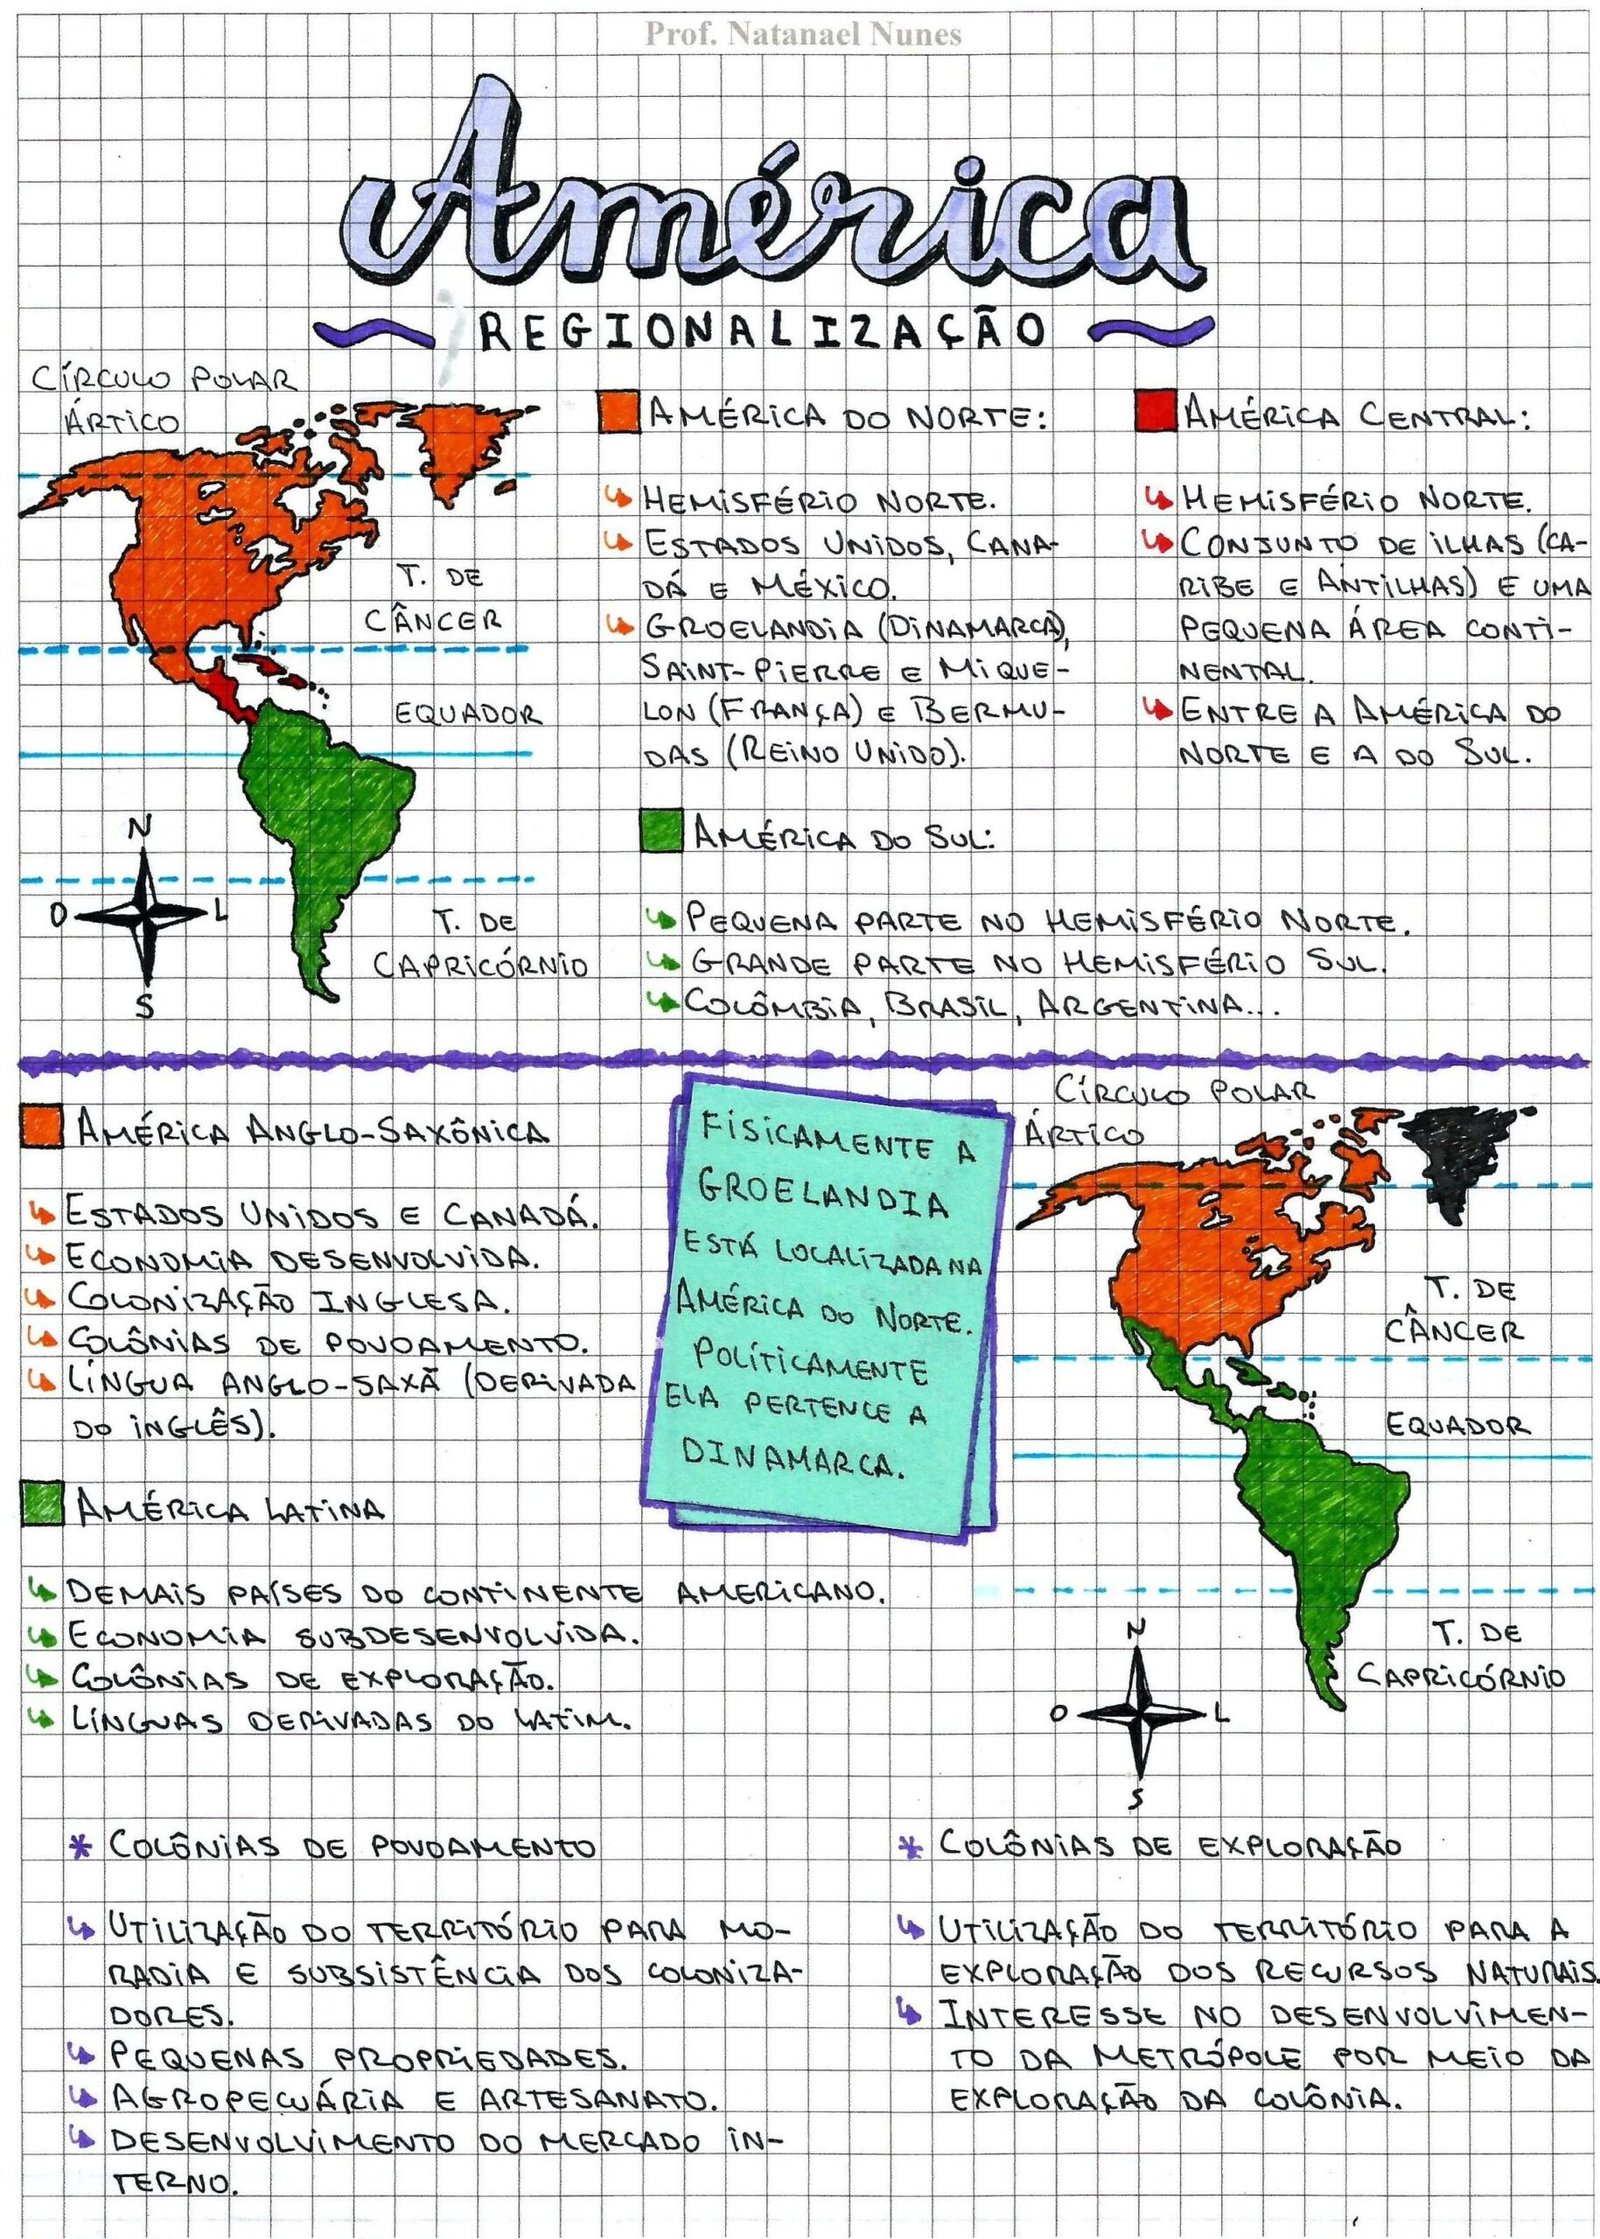 Prof. Natanael Nunes
América
REGIONALIZAÇÃO
CÍRCULO POLAR
ÁRTICO
T. DE
CÂNCER
EQUADOR
N
O L
S
T. DE
CAPRICÓRNIO
AMÉRICA DO NORTE:
HEMISFÉRIO NORTE.
ESTADOS UNIDOS, CANA-
DÁ E MÉXICO.
GROELANDIA (DINAMARCA),
SAINT-PIERRE E MIQUE-
LON (FRANÇA) E BERMU-
DAS (REINO UNIDO).
AMÉRICA CENTRAL:
HEMISFÉRIO NORTE.
CONJUNTO DE ILHAS (CA-
RIBE E ANTILHAS) E UMA
PEQUENA ÁREA CONTI-
NENTAL.
ENTRE A AMÉRICA DO
NORTE E A DO SUL.
AMÉRICA DO SUL:
PEQUENA PARTE NO HEMISFÉRIO NORTE.
GRANDE PARTE NO HEMISFÉRIO SUL.
COLÔMBIA, BRASIL, ARGENTINA...
AMÉRICA ANGLO-SAXÔNICA
ESTADOS UNIDOS E CANADÁ.
ECONOMIA DESENVOLVIDA.
COLONIZAÇÃO INGLESA.
COLÔNIAS DE POVOAMENTO.
LÍNGUA ANGLO-SAXÃ (DERIVADA
DO INGLÊS).
FISICAMENTE A
GROELANDIA
ESTÁ LOCALIZADA NA
AMÉRICA DO NORTE.
POLÍTICAMENTE
ELA PERTENCE A
DINAMARCA.
CÍRCULO POLAR
ÁRTICO
T. DE
CÂNCER
EQUADOR
T. DE
CAPRICÓRNIO
N
O L
S
AMÉRICA LATINA
DEMAIS PAÍSES DO CONTINENTE AMERICANO.
ECONOMIA SUBDESENVOLVIDA.
COLÔNIAS DE EXPLORAÇÃO.
LÍNGUAS DERIVADAS DO LATIM.
* COLÔNIAS DE POVOAMENTO
UTILIZAÇÃO DO TERRITÓRIO PARA MO-
RADIA E SUBSISTÊNCIA DOS COLONIZA-
DORES.
PEQUENAS PROPRIEDADES.
AGROPECUÁRIA E ARTESANATO.
DESENVOLVIMENTO DO MERCADO IN-
TERNO.
* COLÔNIAS DE EXPLORAÇÃO
UTILIZAÇÃO DO TERRITÓRIO PARA A
EXPLORAÇÃO DOS RECURSOS NATURAIS.
INTERESSE NO DESENVOLVIMEN-
TO DA METRÓPOLE POR MEIO DA
EXPLORAÇÃO DA COLÔNIA.